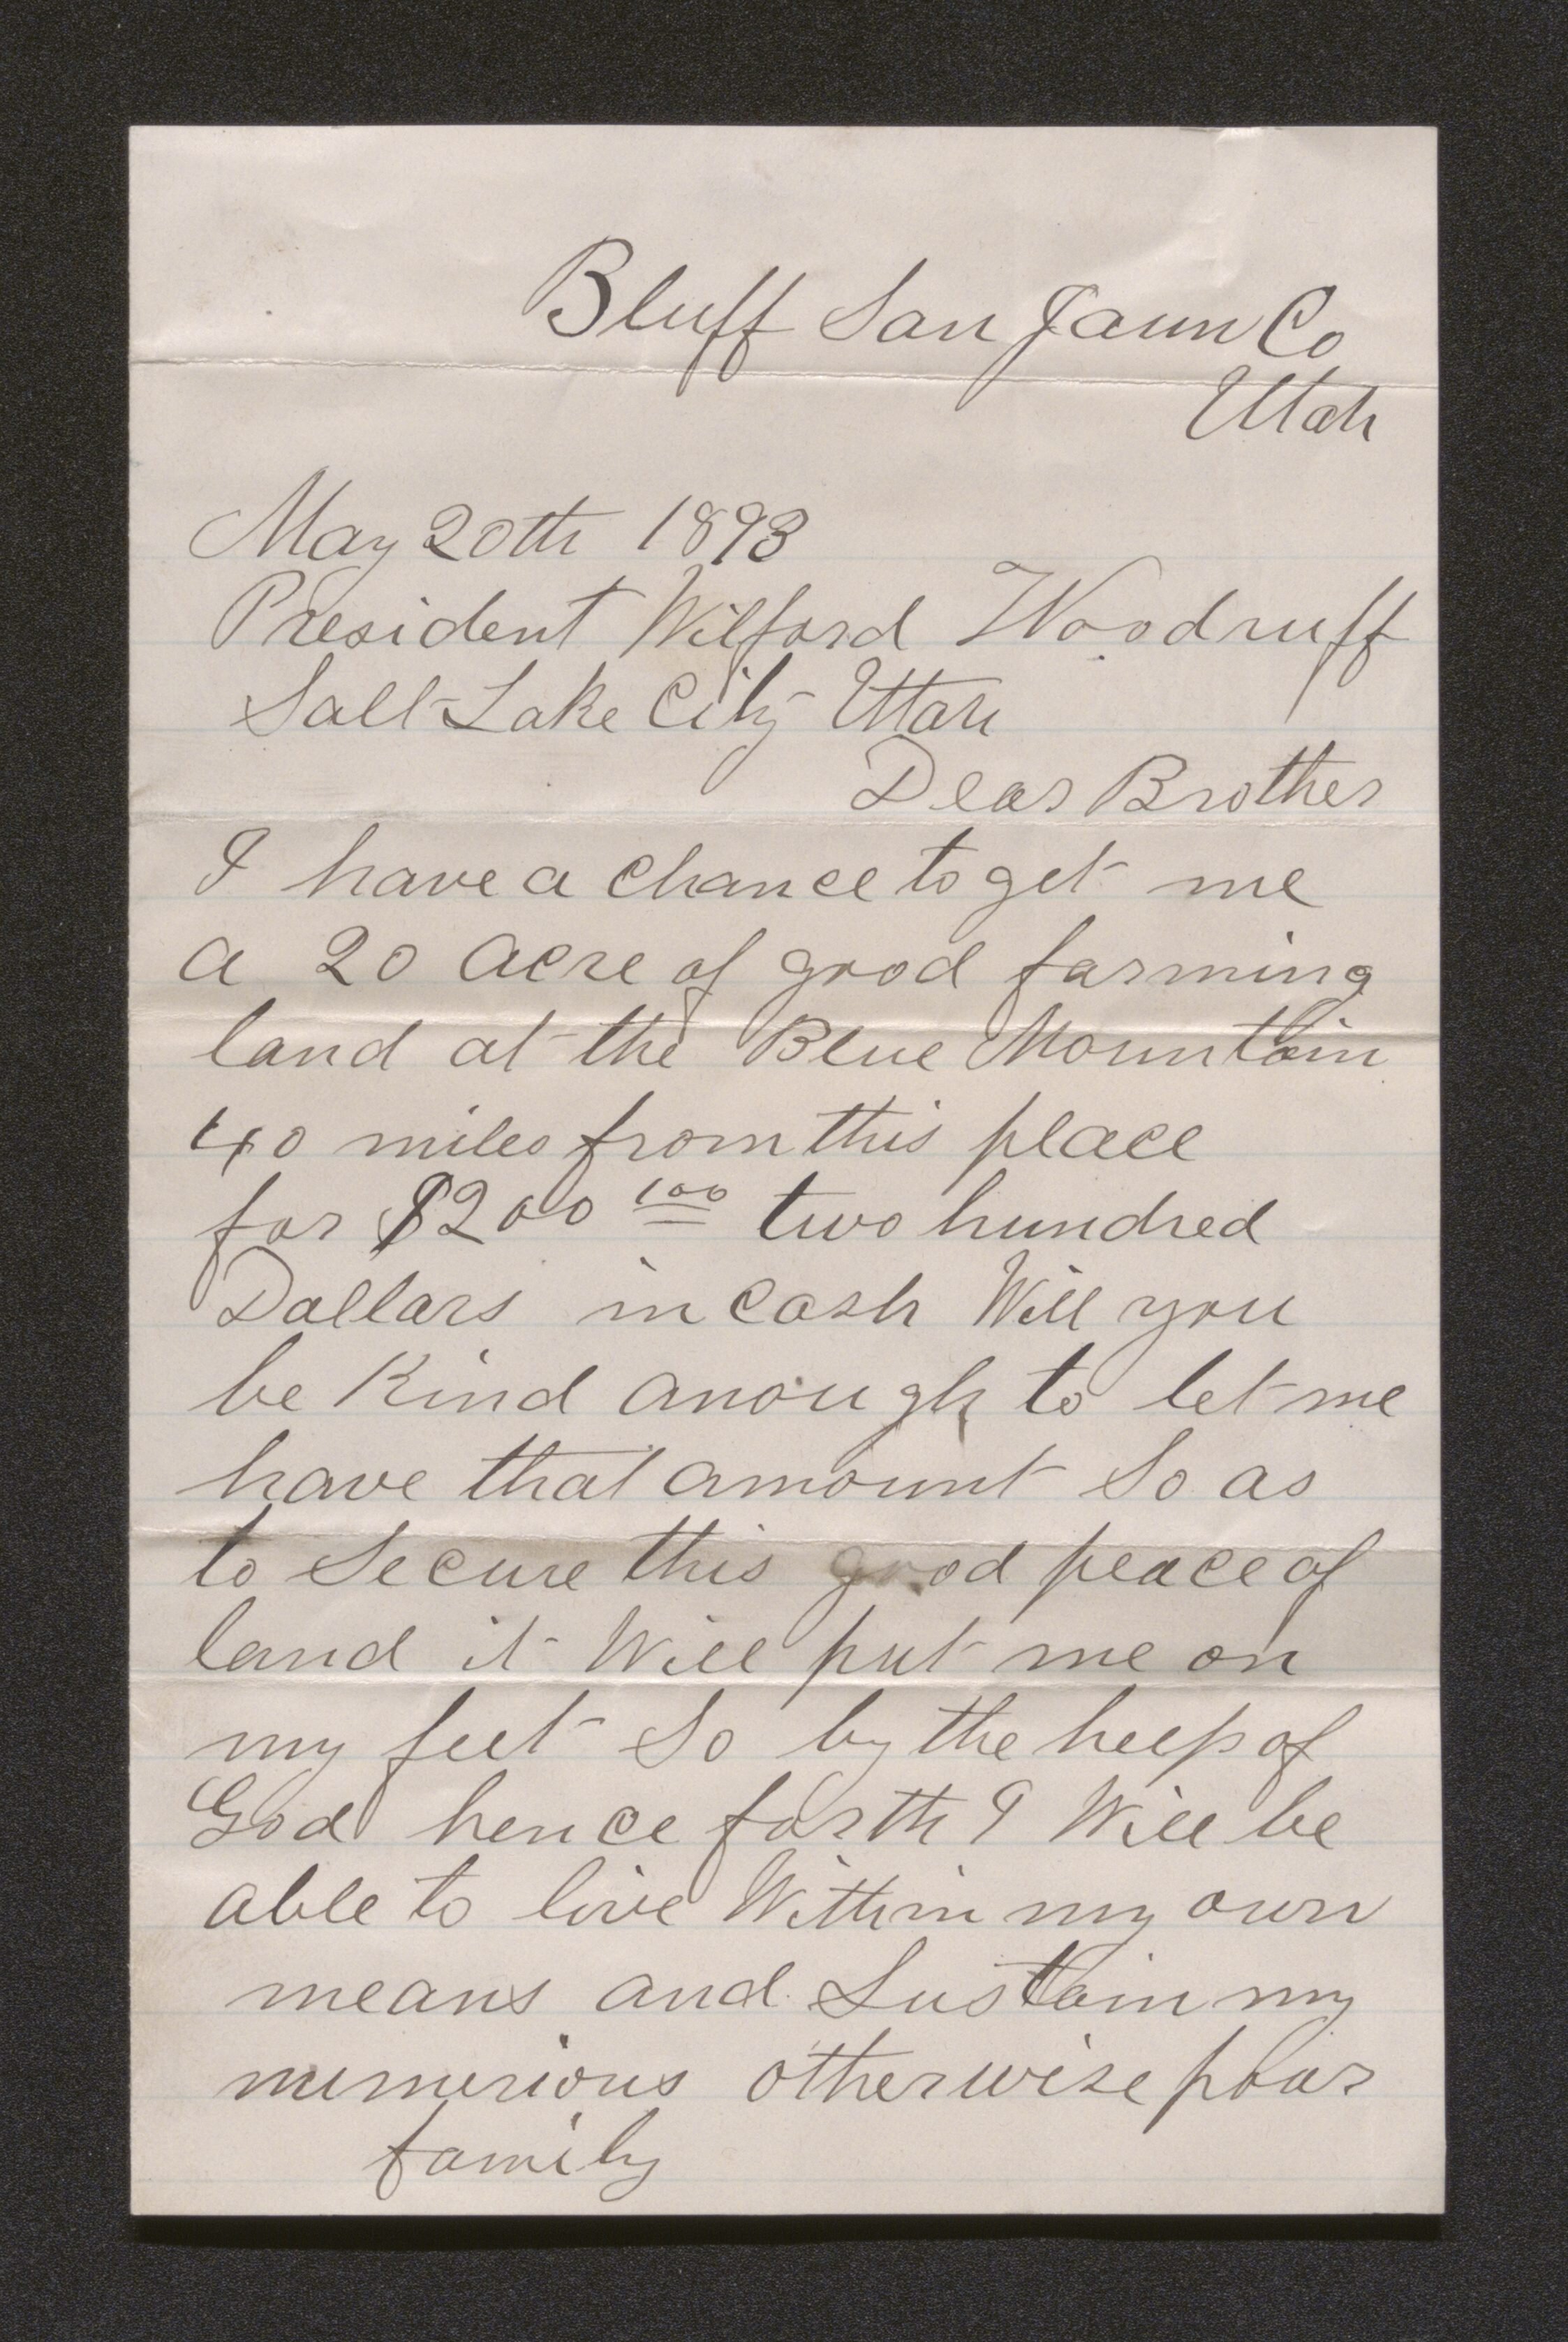 Bluff San Jaun Co
Utah
May 20th 1893
President Wilford Woodruff
Salt Lake City Utah
Dear Brother
I have a chance to get me
a 20 acre of good farming
land at the Blue Mountain
40 miles from this place
for $200 100 two hundred
Dollars in cash Will you
be Kind anough to let me
have that amount So as
to Secure this good peace of
land it Will put me on
my feet So by the help of
God hence forth I Will be
able to live Within my own
means and Sustain my
numurious otherwise poor
family